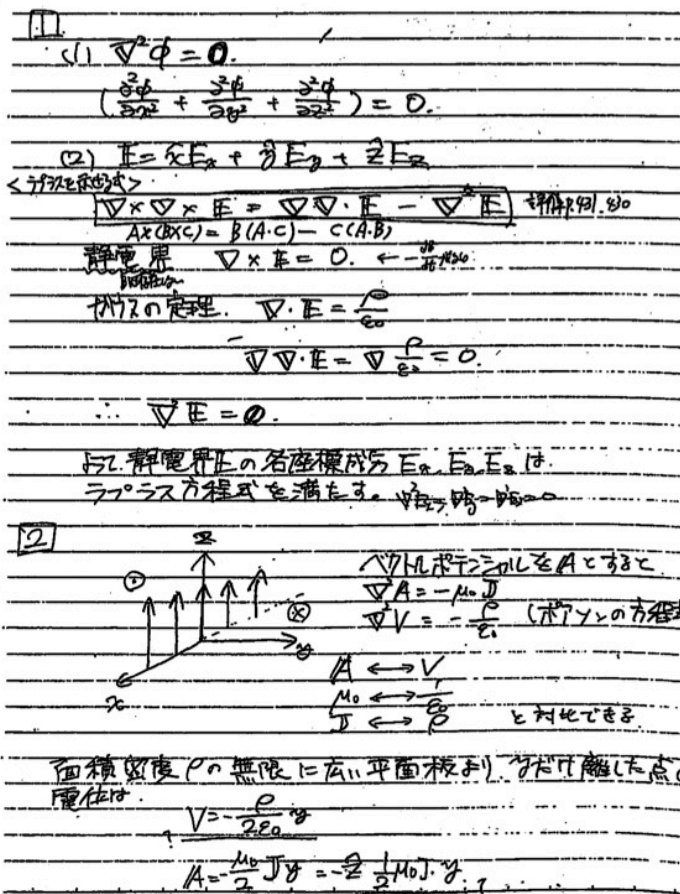 1
(1) ∇²φ = 0.
(∂²φ/∂x² + ∂²φ/∂y² + ∂²φ/∂z²) = 0.
(2) E = x̂Ex + ŷEy + ẑEz
∇×∇×E = ∇∇·E − ∇²E P.431. 430
A×(B×C) = B(A·C) − C(A·B)
静電界 ∇×E = 0. ←
ガウスの定理. ∇·E = ρ/ε₀
∇∇·E = ∇ρ/ε₀ = 0.
∴ ∇²E = 0.
よって. 静電界Eの各座標成分 Ex, Ey, Ez は
ラプラス方程式を満たす。
2
z
y
x
ベクトルポテンシャルをAとすると
∇²A = −μ₀J
∇²V = −ρ/ε₀ (ポアソンの方程式
A ↔ V
μ₀ ↔ 1/ε₀
J ↔ ρ と対比できる
面積密度ρの無限に広い平面板より yだけ離した点の
電位は.
V = −ρ/2ε₀ y
A = −μ₀/2 Jy = −ẑ 1/2 μ₀J·y. ?